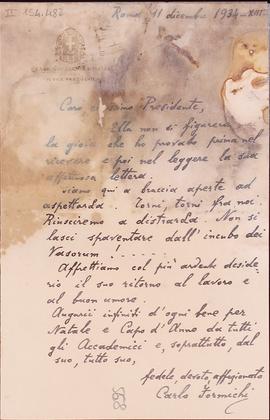 II 154.482
Roma, 11 dicembre 1934-XIII
Caro Presidente,
Ella non si figurerà
la gioia che ho provato prima nel
ricevere e poi nel leggere la sua
affettuosa lettera.
Siamo qui a braccia aperte ad
aspettarla. Torni, torni fra noi.
Riusciremo a distrarla. Non si
lasci spaventare dall'incubo dei
Vasorum . . . . . . .
Affrettiamo col più ardente deside-
rio il suo ritorno al lavoro e
al buon umore.
Augurii infiniti d'ogni bene per
Natale e Capo d'Anno da tutti
gli Accademici e, soprattutto, dal
suo, tutto suo,
fedele, devoto, affezionato
Carlo Formichi